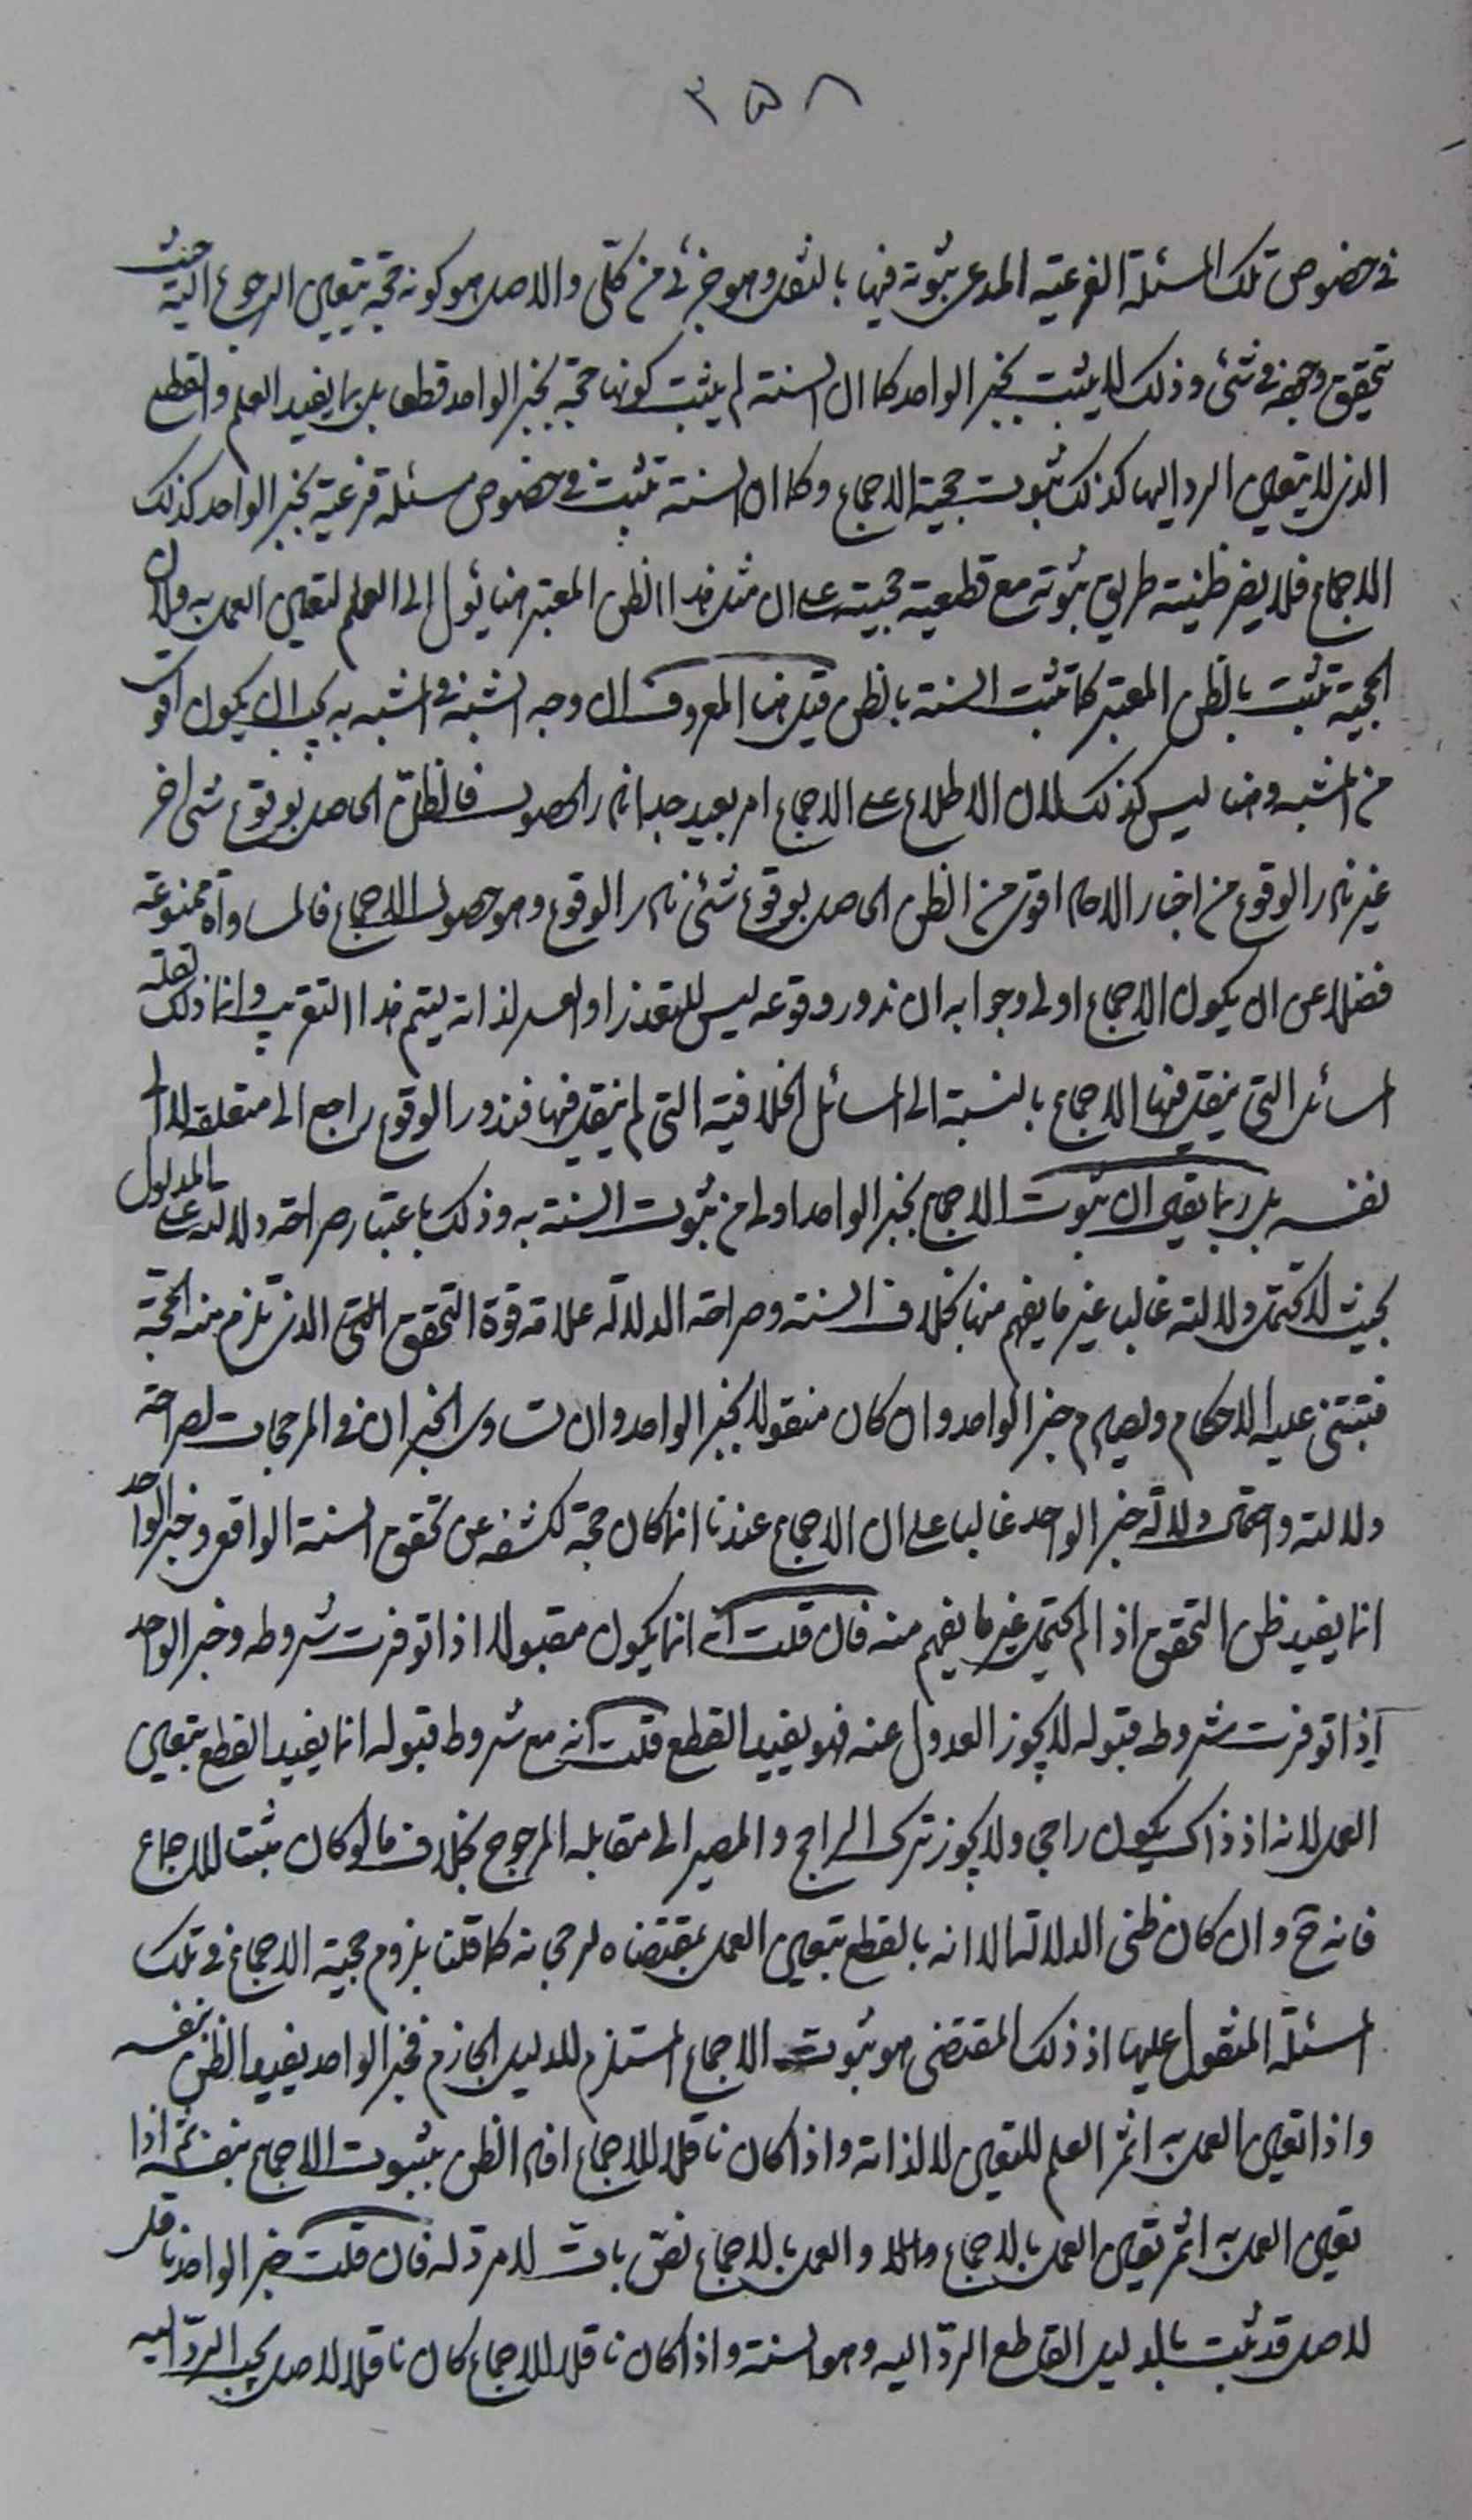 ٣٥٨
في خصوص تلك المسئلة الفرعية المدعى ثبوته فيها بالنقل وهو جزئي من كلي والاصل هو كونه حجة يتعين الرجوع اليه حيث
تحقق وجهه في شئ وذلك لا يثبت بخبر الواحد كما ان السنة لم يثبت كونها حجة بخبر الواحد قطعا بل بما يفيد العلم والقطع
الذي لا يتعين الرد اليها كذلك ثبوت حجية الاجماع وكما ان السنة تثبت في خصوص مسئلة فرعية بخبر الواحد كذلك
الاجماع فلا يضر ظنية طريق ثبوته مع قطعية حجيته على ان مثل هذا الظن المعتبر هنا يئول الى العلم لتعين العمل به ولان
الحجية تثبت بالظن المعتبر كما تثبت السنة بالظن قيل هنا المعروف ان وجه الشبه في المشبه به يجب ان يكون اقوى
من المشبه وهنا ليس كذلك لان الاطلاع على الاجماع امر بعيد جدا نادر الحصول فالظن الحاصل بوقوع شئ اخر
غير نادر الوقوع من اخبار الاحاد اقوى من الظن الحاصل بوقوع شئ نادر الوقوع وهو حصول الاجماع فالمساواة ممنوعة
فضلا عن ان يكون الاجماع اولى وجوابه ان ندور وقوعه ليس للتعذر او العسر لذاته ليتم هذا التقريب وانما ذلك لقلة
المسائل التي ينعقد فيها الاجماع بالنسبة الى المسائل الخلافية التي لم ينعقد فيها فندور الوقوع راجع الى متعلقه لا الى
نفسه بل ربما يقال ان ثبوت الاجماع بخبر الواحد اولى من ثبوت السنة به وذلك باعتبار صراحة دلالته على المدلول
بحيث لا تحتمل دلالته غالبا غير ما يفهم منها بخلاف السنة وصراحة الدلالة علامة قوة التحقق الذي تلزم منه الحجة
فتبتنى عليه الاحكام خبر الواحد وان كان منقولا بخبر الواحد وان تساوى الخبران في المرجحات لصراحة
دلالته واحتمال دلالة خبر الواحد غالبا على ان الاجماع عندنا انما كان حجة لكشفه عن تحقق السنة الواقع وخبر الواحد
انما يفيد ظن التحقق اذا لم يحتمل غير ما يفهم منه فان قلت انه انما يكون مقبولا اذا توفرت شروطه وخبر الواحد
اذا توفرت شروط قبوله لا يجوز العدول عنه فهو يفيد القطع قلت انه مع شروط قبوله انما يفيد القطع بتعين
العمل لانه اذ ذاك يكون راجحا ولا يجوز ترك الراجح والمصير الى مقابله المرجوح بخلاف ما لو كان مثبتا للاجماع
فانه ح وان كان ظني الدلالة الا انه بالقطع يتعين العمل بمقتضاه لرجحانه كما قلنا بلزوم حجية الاجماع في تلك
المسئلة المنقول عليها اذ ذلك المقتضى هو ثبوت الاجماع المستلزم للدليل الجازم فخبر الواحد يفيد الظن بنفسه
واذا تعين العمل به اثمر العلم للتعين لا لذاته واذا كان ناقلا للاجماع افاد الظن بثبوت الاجماع بنفسه ثم اذا
تعين العمل به اثمر تعين العمل بالاجماع والعمل بالاجماع نص بات لا مرد له فان قلت خبر الواحد ناقل
لاصل قد ثبت بالدليل القاطع الرد اليه وهو السنة واذا كان ناقلا للاجماع كان ناقلا لاصل يجب الرد اليه